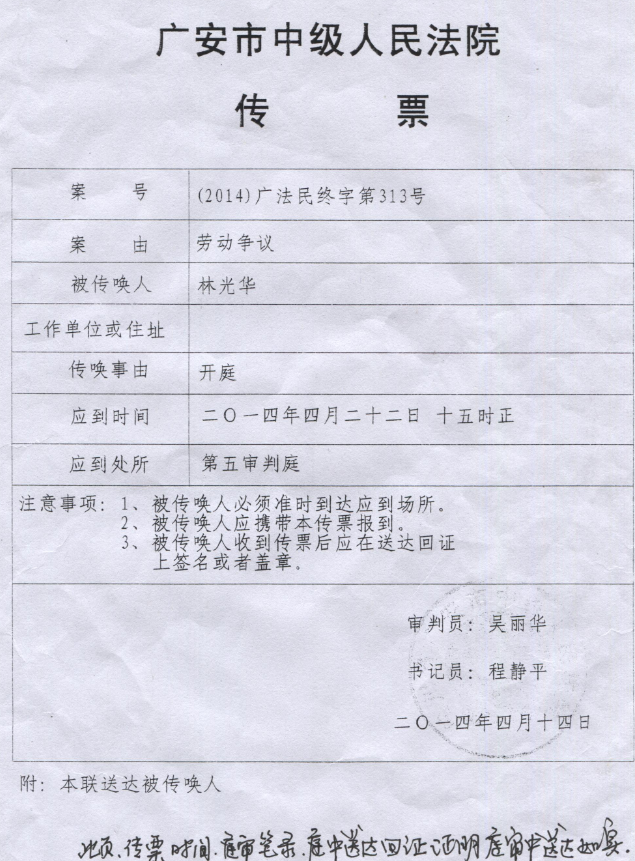 广安市中级人民法院
传 票
案 号 (2014)广法民终字第313号
案 由 劳动争议
被传唤人 林光华
工作单位或住址
传唤事由 开庭
应到时间 二〇一四年四月二十二日 十五时正
应到处所 第五审判庭
注意事项: 1、被传唤人必须准时到达应到场所。
2、被传唤人应携带本传票报到。
3、被传唤人收到传票后应在送达回证
上签名或者盖章。
审判员: 吴丽华
书记员: 程静平
二〇一四年四月十四日
附: 本联送达被传唤人
传票时间、庭审笔录、庭中送达回证证明庭审中送达